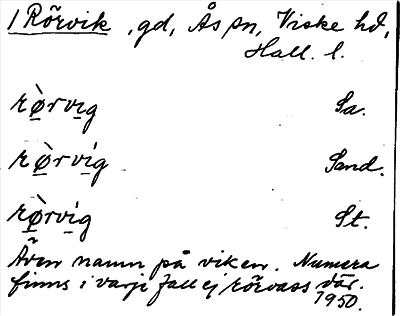 1 Rörvik, gd, Ås sn, Viske hd,
Hall. l.
rò̤rvi̱g Sa.
rò̤rví̱g Sand.
rò̤rvi̱g St.
Även namn på viken. Numera
finns i varje fall ej rörvass där.
1950.